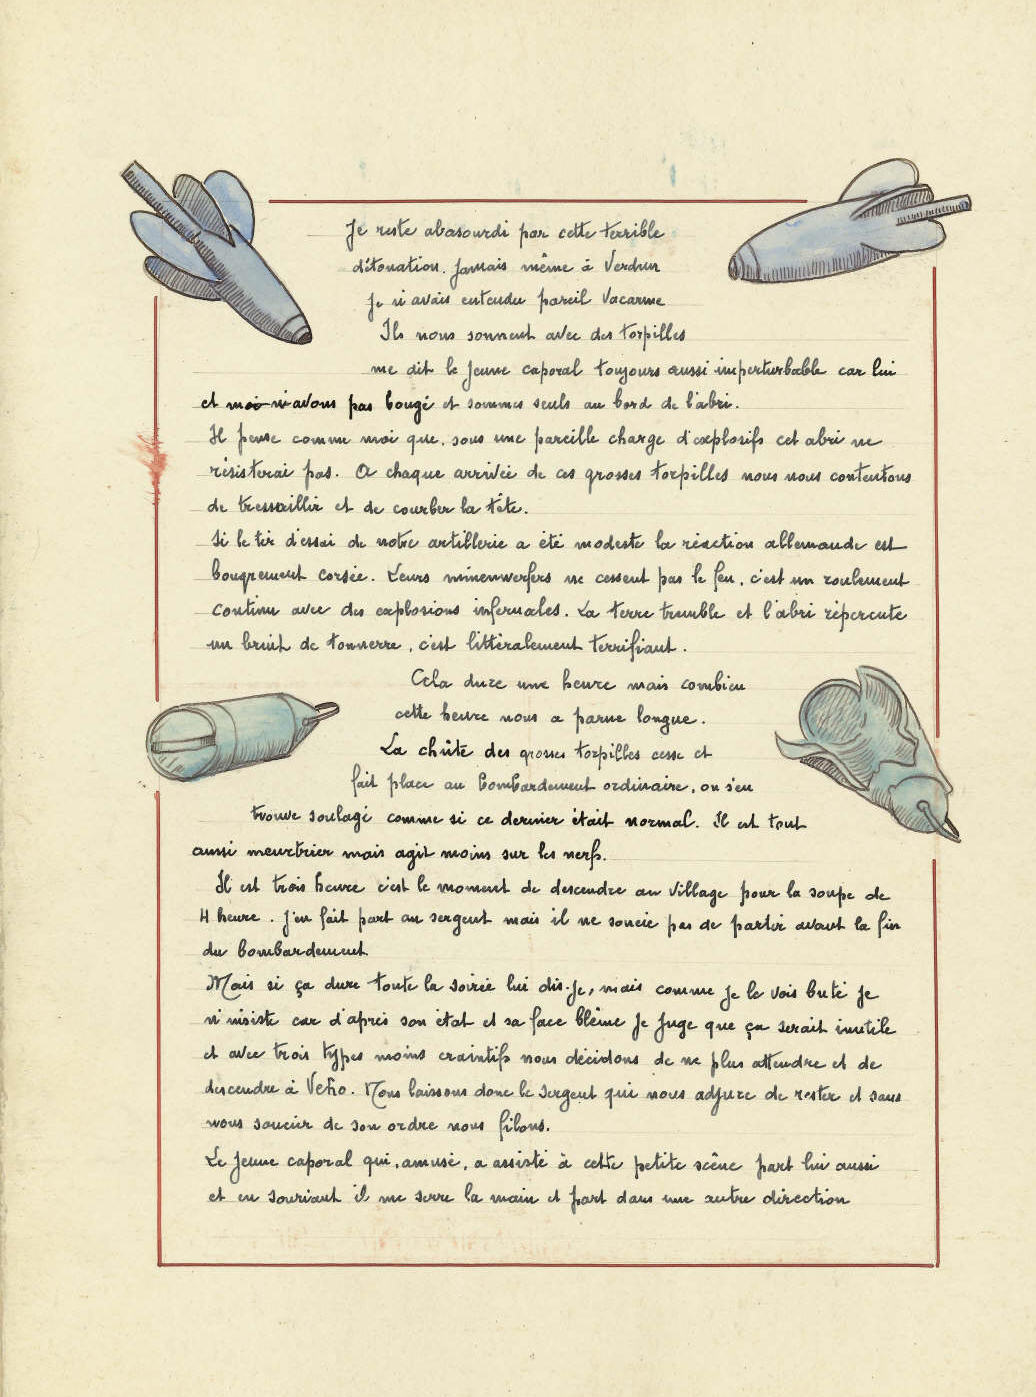 Je reste abasourdi par cette terrible
détonation. Jamais même à Verdun
Je n'avais entendu pareil vacarme
Ils nous sonnent avec des torpilles
me dit le jeune caporal toujours aussi imperturbable car lui
et moi n'avons pas bougé et sommes seuls au bord de l'abri.
Il pense comme moi que, sous une pareille charge d'explosifs cet abri ne
résisterai pas. A chaque arrivée de ces grosses torpilles nous nous contentons
de tressaillir et de courber la tête.
Si le tir d'essai de notre artillerie a été modeste la réaction allemande est
bougrement corsée. Leurs minenwerfers ne cessent pas le feu, c'est un roulement
continu avec des explosions infernales. La terre tremble et l'abri répercute
un bruit de tonnerre, c'est littéralement terrifiant.
Cela dure une heure mais combien
cette heure nous a parue longue.
La chûte des grosses torpilles cesse et
fait place au bombardement ordinaire, on s'en
trouve soulagé comme si ce dernier était normal. Il est tout
aussi meurtrier mais agit moins sur les nerfs.
Il est trois heure c'est le moment de descendre au village pour la soupe de
4 heure. J'en fait part au sergent mais il ne soucie pas de partir avant la fin
du bombardement.
Mais si ça dure toute la soirée lui dis-je, mais comme je le vois buté je
n'insiste car d'après son état et sa face blême je juge que ça serait inutile
et avec trois types moins craintifs nous décidons de ne plus attendre et de
descendre à Vého. Nous laissons donc le sergent qui nous adjure de rester et sans
nous soucier de son ordre nous filons.
Le jeune caporal qui, amusé, a assisté à cette petite scène part lui aussi
et en souriant il me serre la main et part dans une autre direction